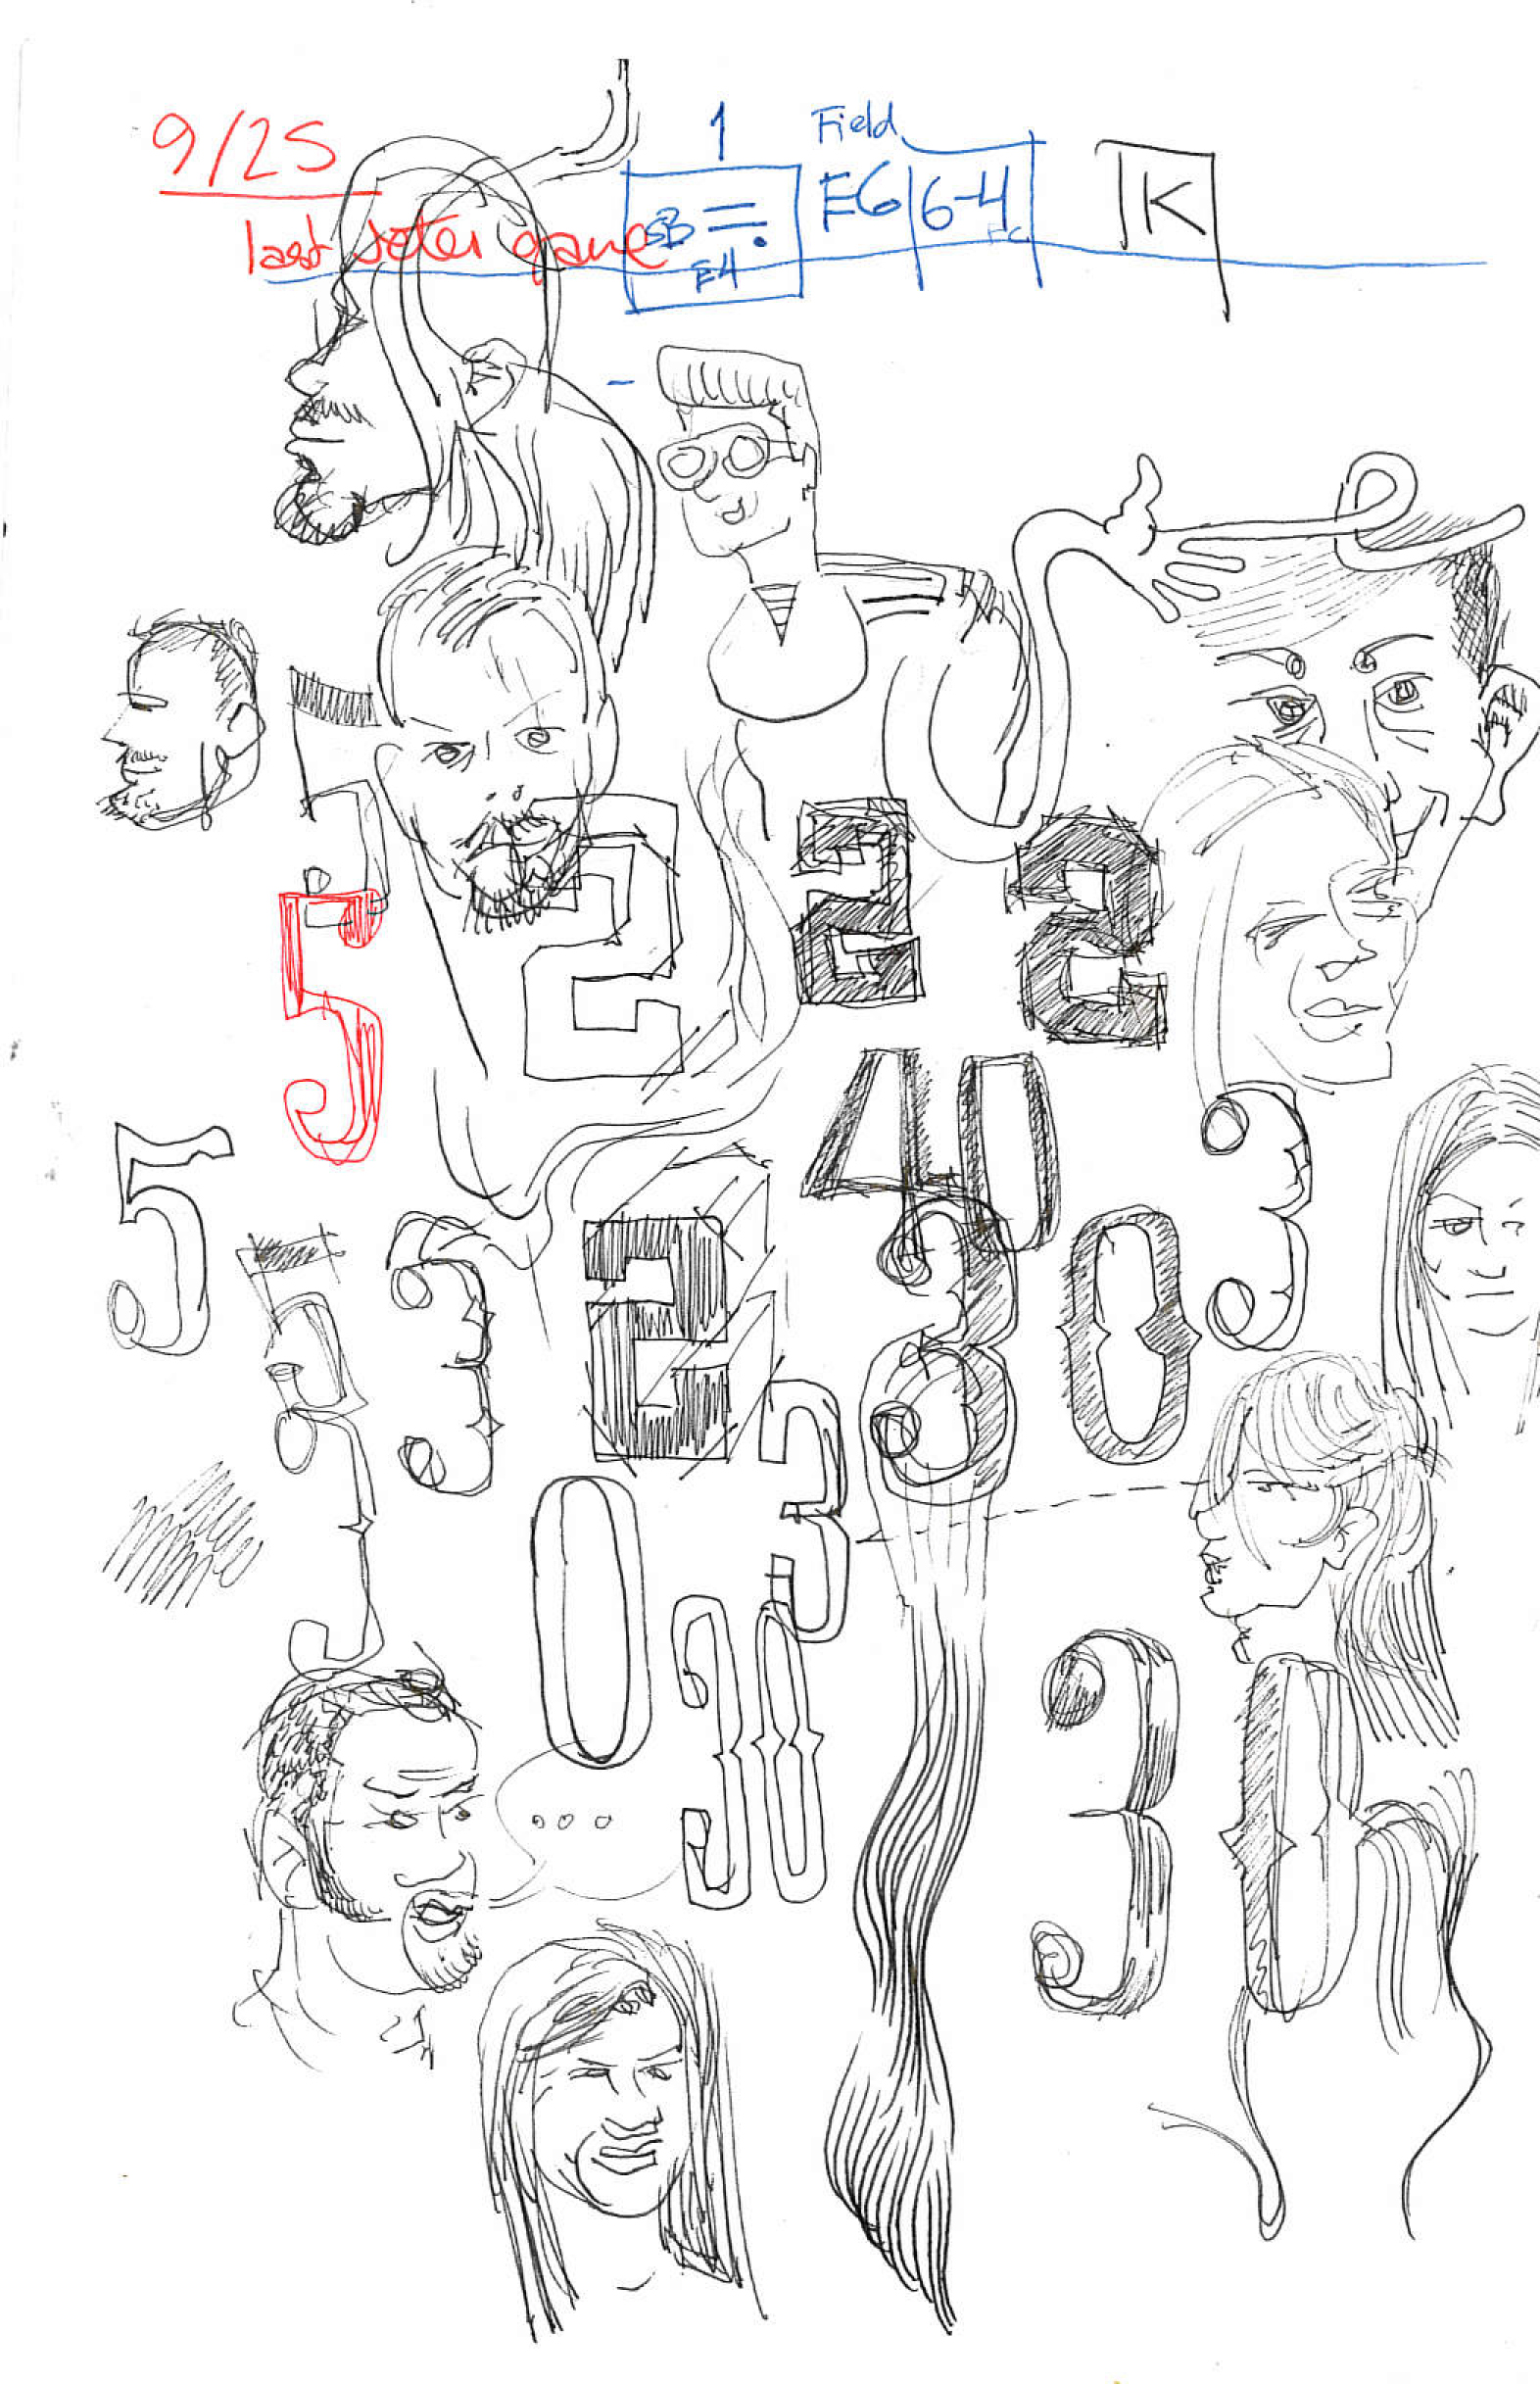 9/25
1 Field
last Jeter game SB E4 E6 6-4 FC K
5 2 2 2
5
40 3
5 3 2 3 0
3 3
0 30
30
...